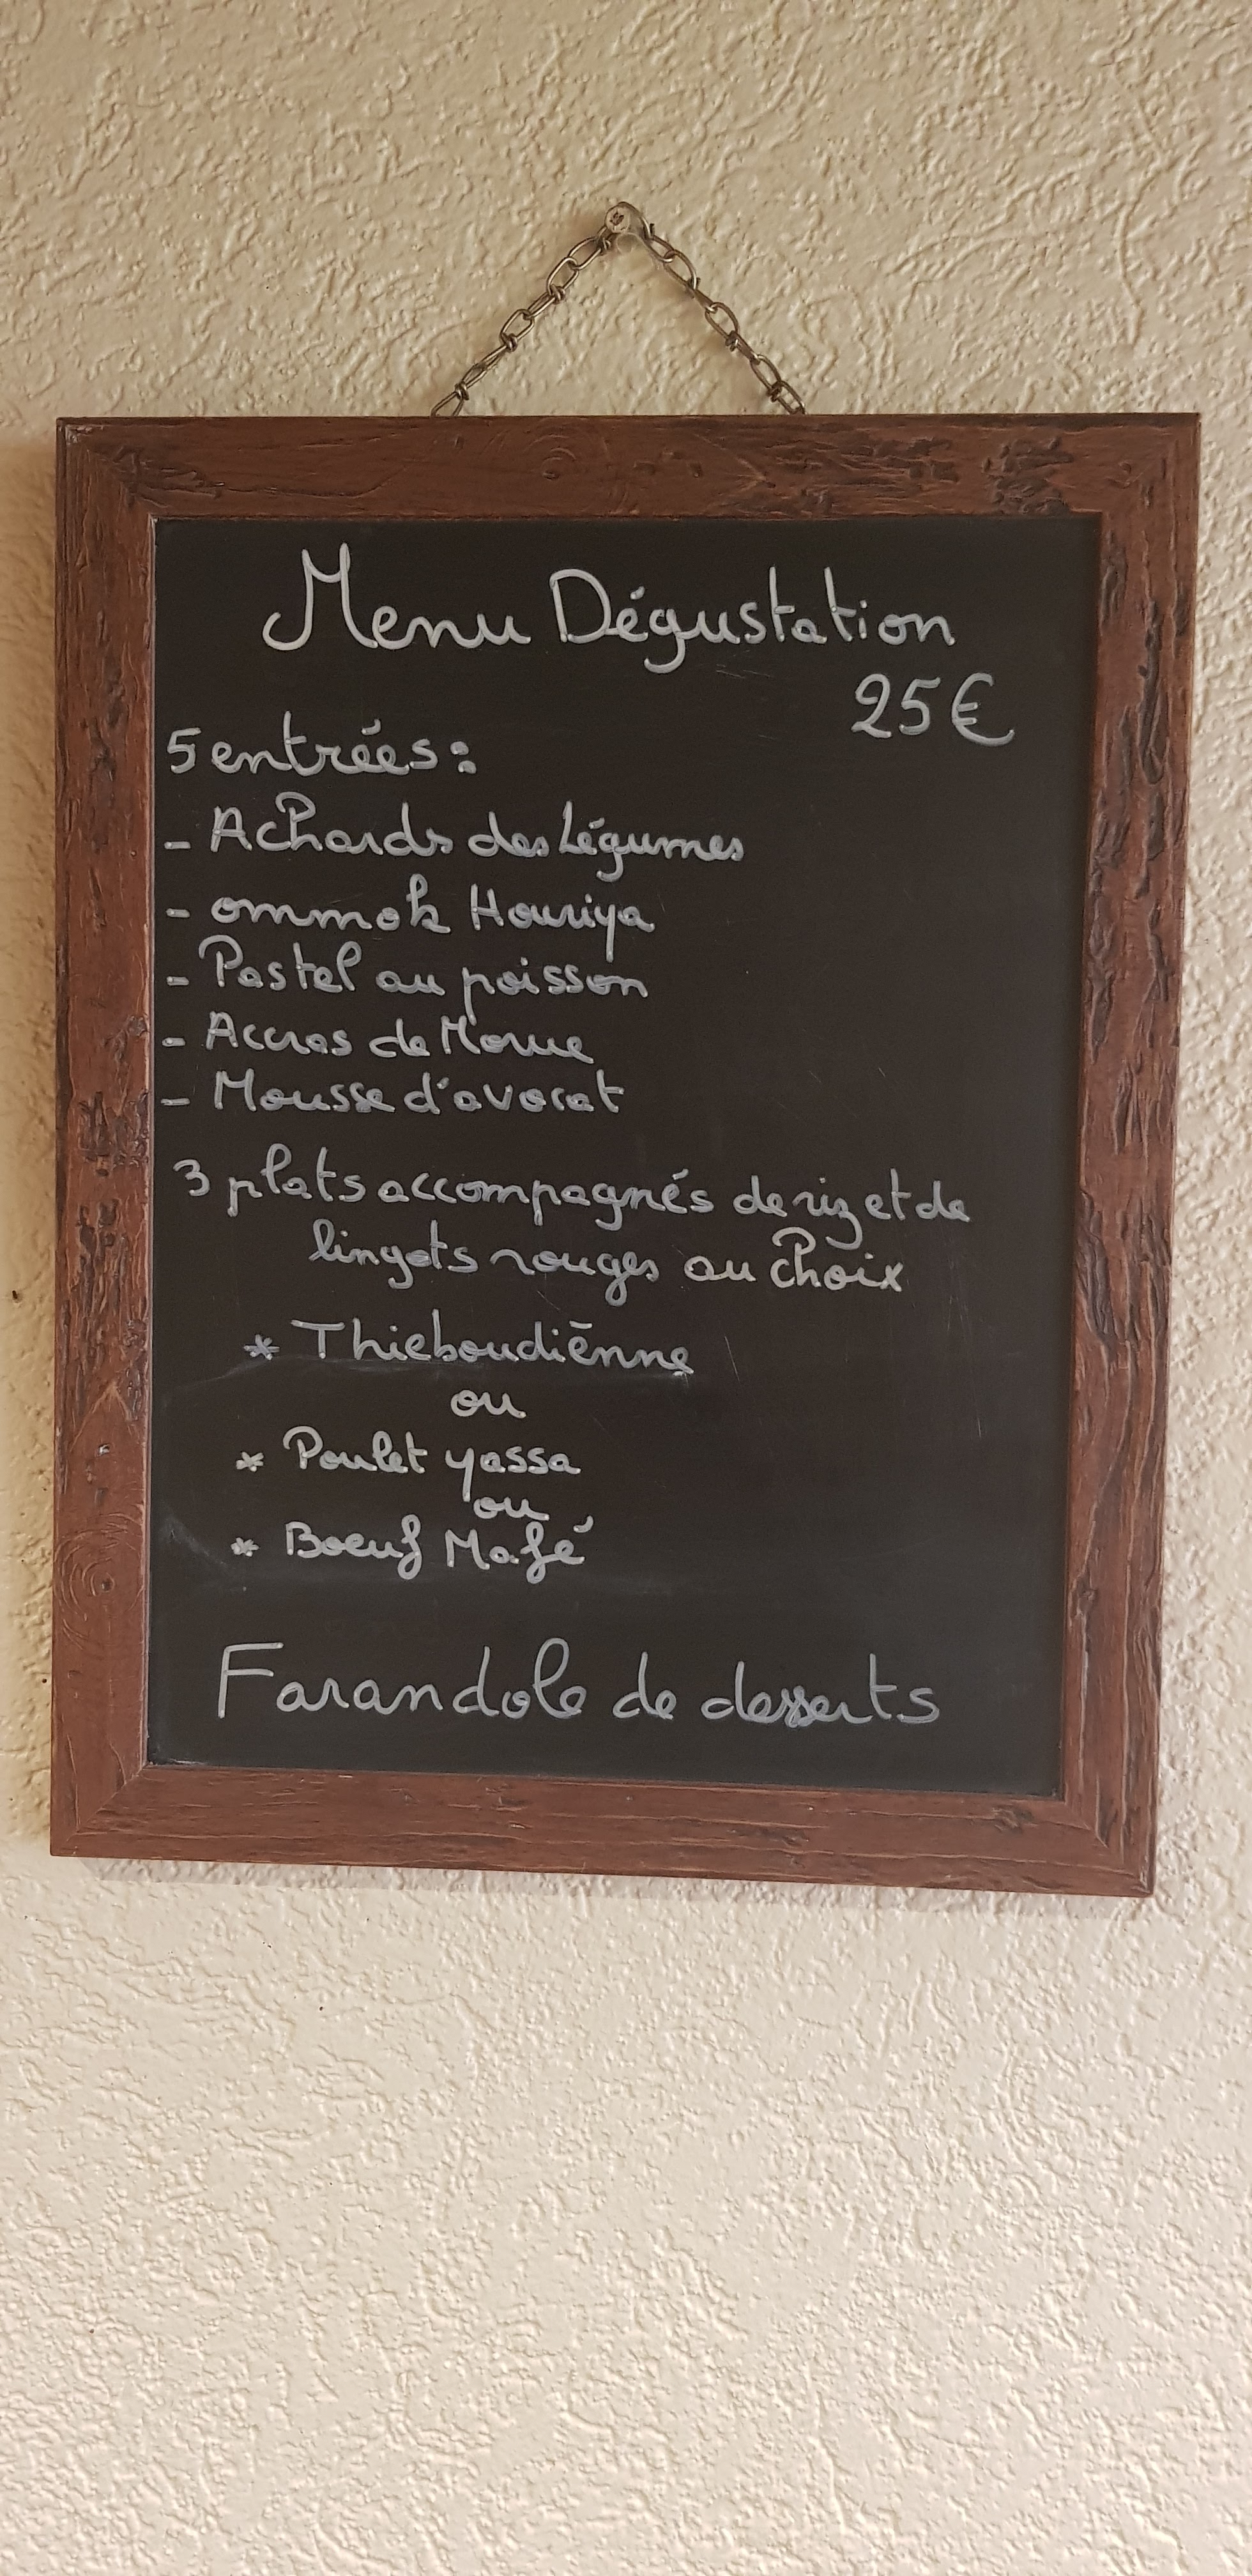 Menu Dégustation
25€
5 entrées :
- Achards des Légumes
- ommok Houriya
- Pastel au poisson
- Accras de Morue
- Mousse d'avocat
3 plats accompagnés de riz et de
lingots rouges au choix
* Thieboudiènne
ou
* Poulet yassa
ou
* Boeuf Mafé
Farandole de desserts